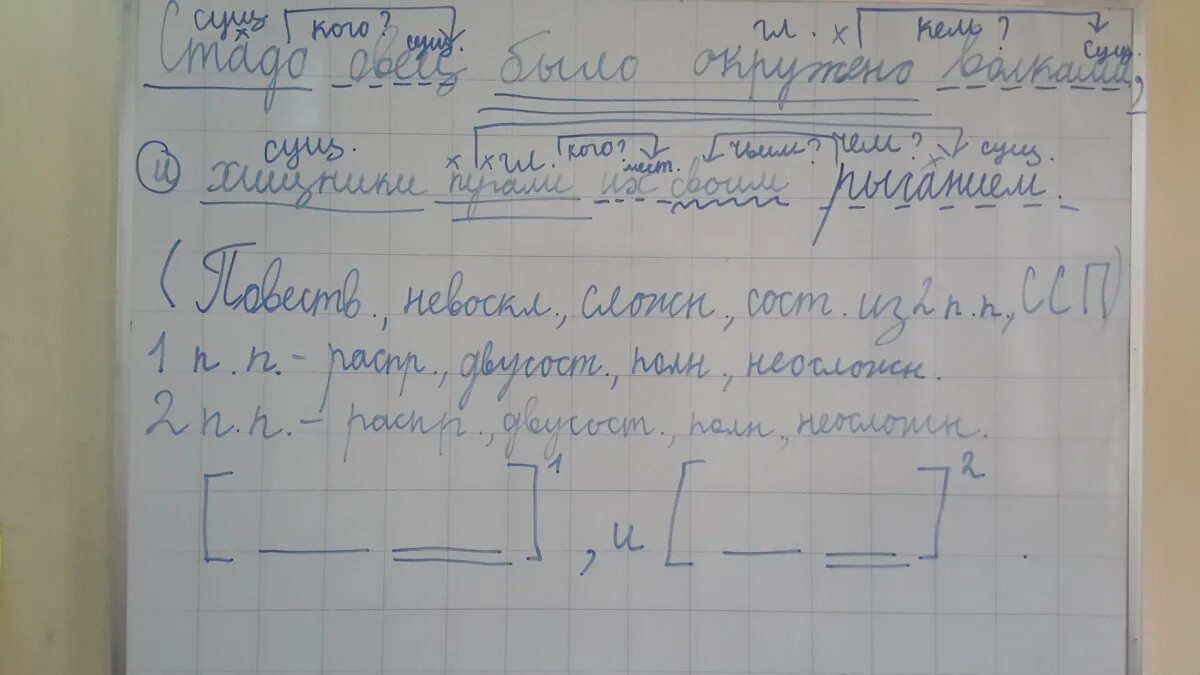 сущ кого? сущ. гл. х кем? сущ.
Стадо овец было окружено волками,
сущ. х х гл. кого? мест. чьим? чем? х сущ.
и хищники пугали их своим рыганием.
(Повеств., невоскл., сложн., сост. из 2 п.п., ССП)
1 п.п. – распр., двусост., полн., неосложн.
2 п.п. – распр., двусост., полн., неосложн.
[ ]1 , и [ ]2 .